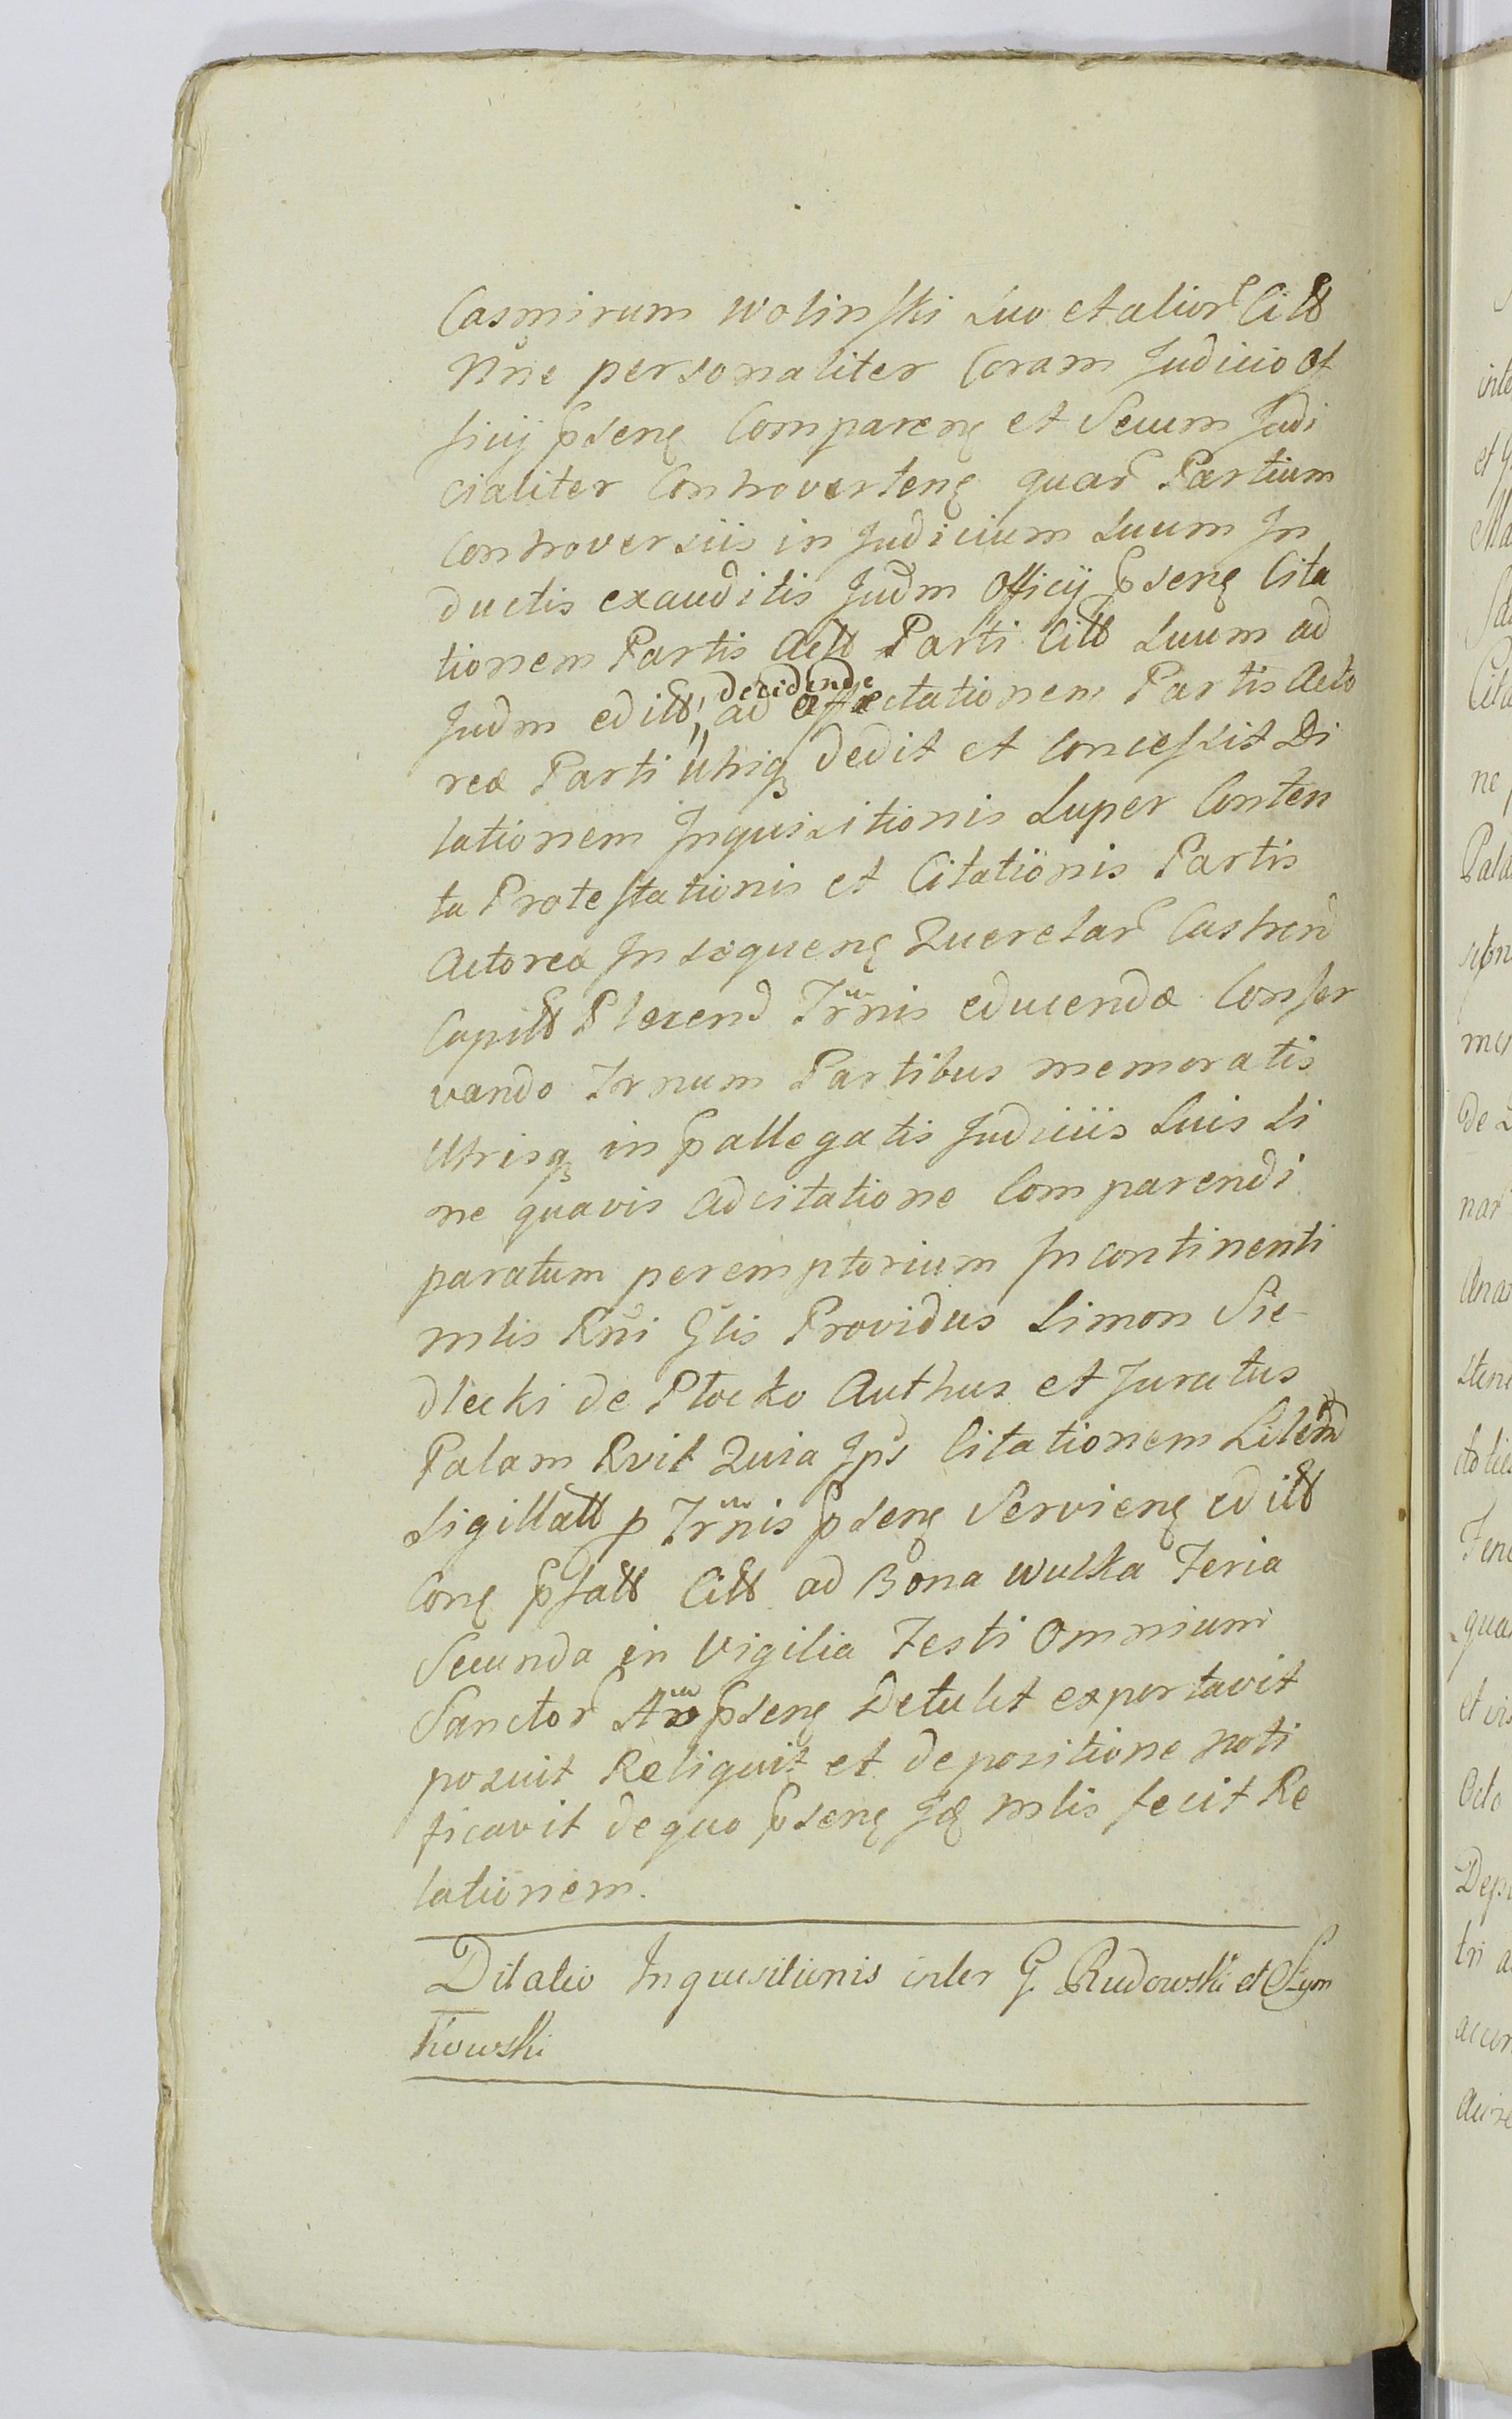 Casmirum Wolinski suo et alior Citt
Nne personaliter Coram Judicio Of
ficij pseng Compareng et Secum Judi
cialiter Controverteng quar Partium
Controversiis in Judicium suum In
ductis exauditis Judm Officij pseng Cita
tionem Partis Actt Parti Citt suum ad
Judm editt decidende ad affectationem Partis Acto
rea Parti utriq dedit et concessit Di
lationem Inquisitionis super Conten
ta Protestationis et Citationis Partis
Actorea Insequeng Querelar Castren
Capitt Plocen Trnis educenda Conser
vando Trnum Partibus memoratis
Utrisq in pallegatis Judiciis suis si
ne quavis adcitatione Comparendi
paratum peremptorium Incontinenti
Mlis Rni Glis Providus Simon Sie-
dlecki de Plocko Authus et Juratus
Palam Rvit Quia Ips Citationem
sigillatt p Trnis pseng Servieng editt
Cong psatt Citt ad Bona Wulka Feria
Secunda in Vigilia Festi Omnium
Sanctor pseng Detulit exportavit
posuit Reliquit et depositione noti
ficavit de quo pseng Id Mlis fecit Re
lationem.
Dilatio Inquisitionis inter G. Rudowski et Szym
kowski